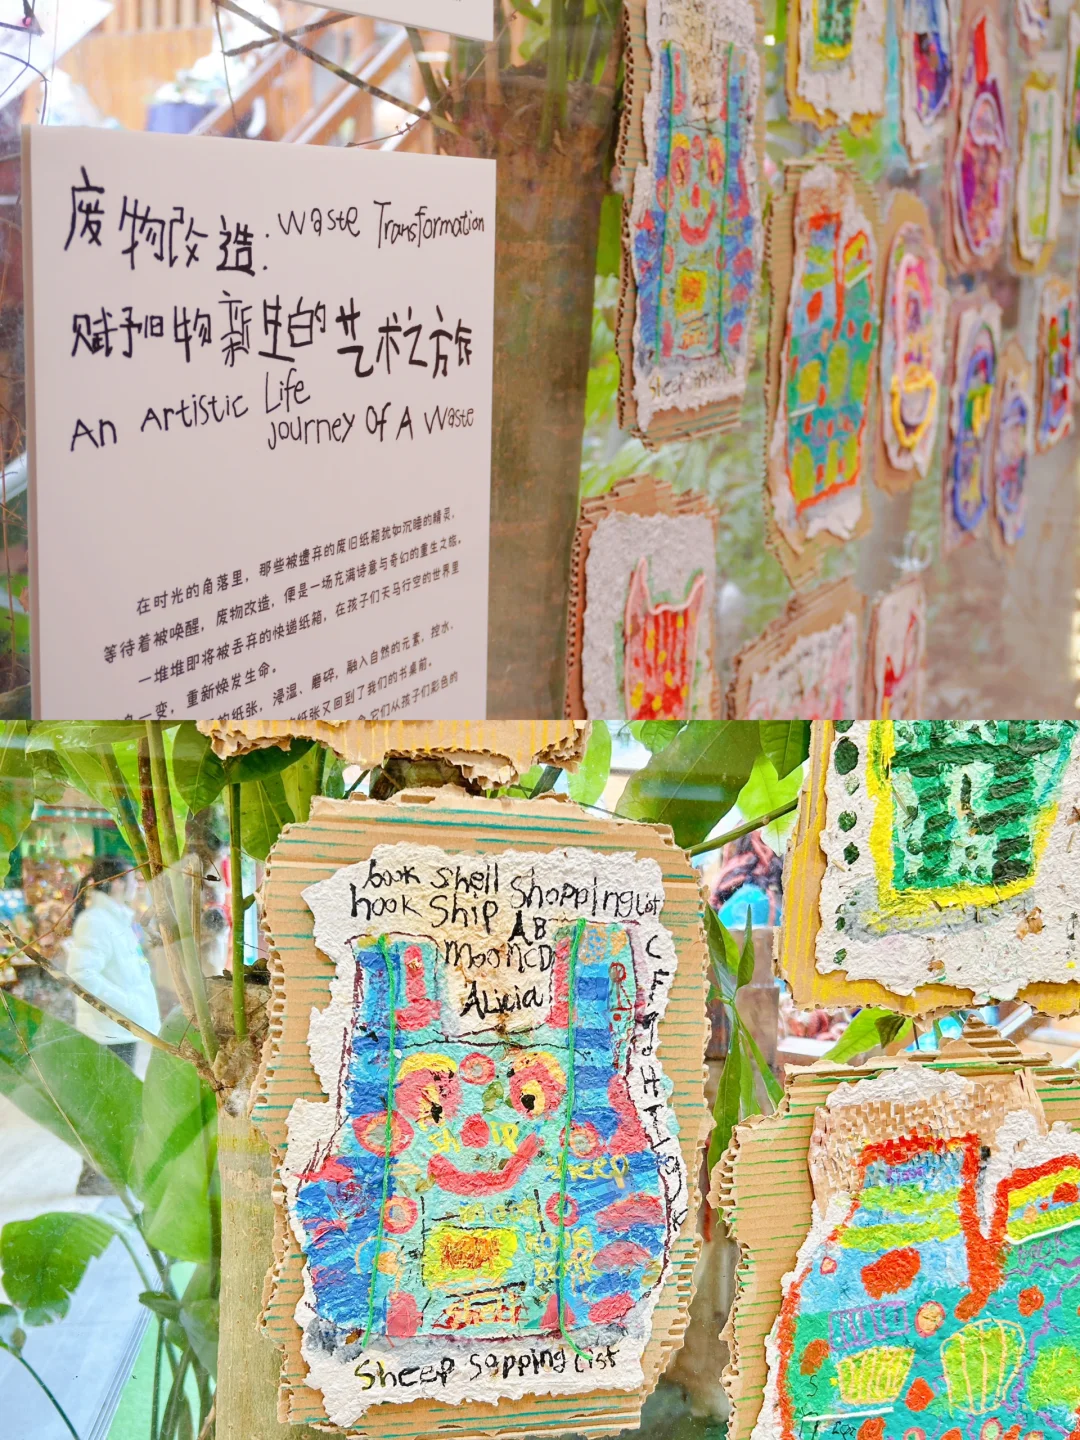 废物改造: Waste Transformation
赋予旧物新生的艺术之旅
An Artistic Life
Journey Of A Waste
在时光的角落里，那些被遗弃的废旧纸箱犹如沉睡的精灵，
等待着被唤醒，废物改造，便是一场充满诗意与奇幻的重生之旅。
一堆堆即将被丢弃的快递纸箱，在孩子们天马行空的世界里
一变，重新焕发生命。
的纸张，浸湿、磨碎，融入自然的元素，控水、
纸张又回到了我们的书桌前。
它们从孩子们彩色的
book Shell Shopping List
hook Ship AB
Moon CD
Alicia
SHEEP
Sheep Sopping List